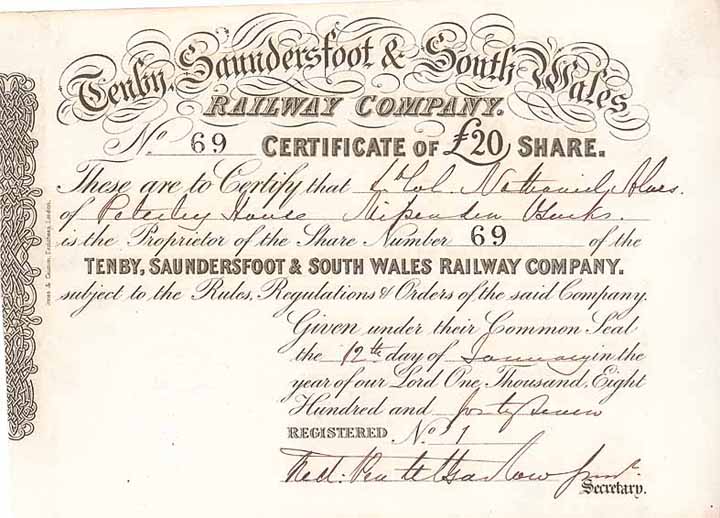 Tenby, Saundersfoot & South Wales
RAILWAY COMPANY.
No 69 CERTIFICATE OF £20 SHARE.
These are to Certify that Lt Col. Nathaniel Alves.
of Peterley House Missenden Bucks.
is the Proprietor of the Share Number 69 of the
TENBY, SAUNDERSFOOT & SOUTH WALES RAILWAY COMPANY.
subject to the Rules, Regulations & Orders of the said Company.
Given under their Common Seal
the 12th day of January in the
year of our Lord One Thousand Eight
Hundred and forty seven
REGISTERED No 1
Secretary.
London.